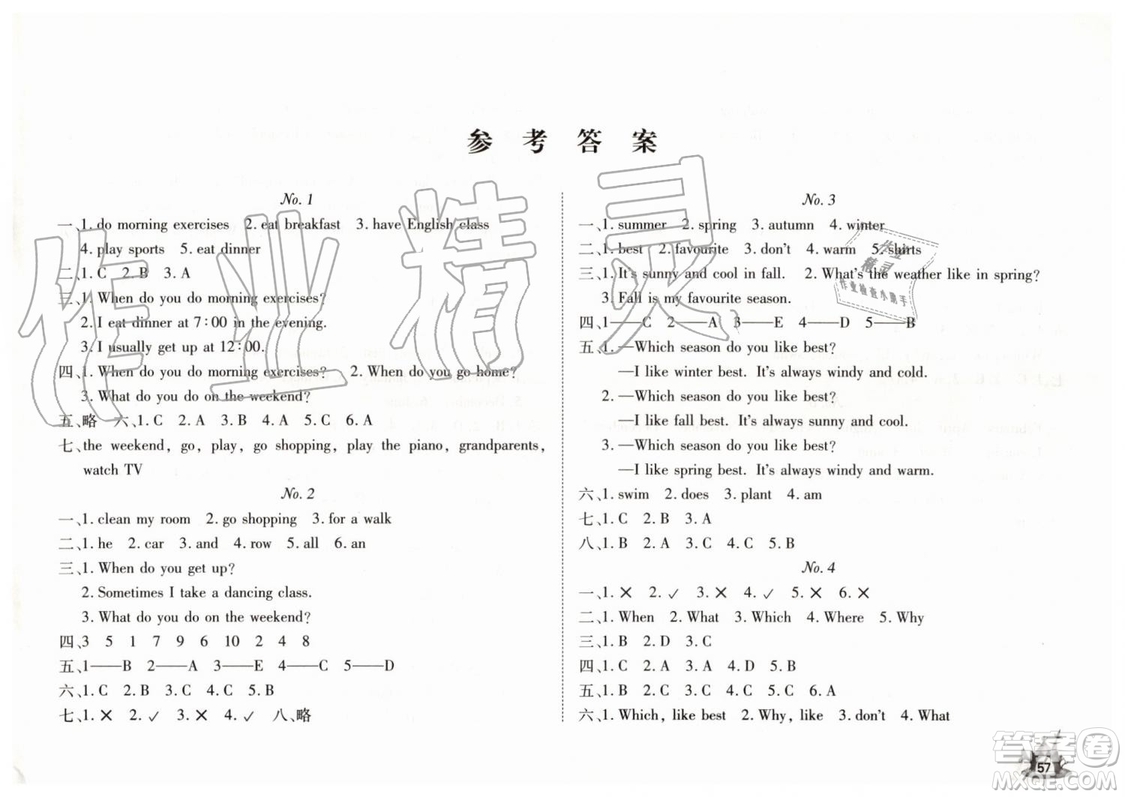 参考答案
No. 1
一、1. do morning exercises 2. eat breakfast 3. have English class
4. play sports 5. eat dinner
二、1. C 2. B 3. A
三、1. When do you do morning exercises?
2. I eat dinner at 7:00 in the evening.
3. I usually get up at 12:00.
四、1. When do you do morning exercises? 2. When do you go home?
3. What do you do on the weekend?
五、略 六、1. C 2. A 3. B 4. A 5. C 6. A
七、the weekend, go, play, go shopping, play the piano, grandparents,
watch TV
No. 2
一、1. clean my room 2. go shopping 3. for a walk
二、1. he 2. car 3. and 4. row 5. all 6. an
三、1. When do you get up?
2. Sometimes I take a dancing class.
3. What do you do on the weekend?
四、3 5 1 7 9 6 10 2 4 8
五、1——B 2——A 3——E 4——C 5——D
六、1. C 2. B 3. A 4. C 5. B
七、1. ✗ 2. ✓ 3. ✗ 4. ✓ 八、略
No. 3
一、1. summer 2. spring 3. autumn 4. winter
二、1. best 2. favourite 3. don't 4. warm 5. shirts
三、1. It's sunny and cool in fall. 2. What's the weather like in spring?
3. Fall is my favourite season.
四、1——C 2——A 3——E 4——D 5——B
五、1. —Which season do you like best?
—I like winter best. It's always windy and cold.
2. —Which season do you like best?
—I like fall best. It's always sunny and cool.
3. —Which season do you like best?
—I like spring best. It's always windy and warm.
六、1. swim 2. does 3. plant 4. am
七、1. C 2. B 3. A
八、1. B 2. A 3. C 4. C 5. A
No. 4
一、1. ✗ 2. ✓ 3. ✗ 4. ✓ 5. ✗ 6. ✗
二、1. When 2. What 3. Which 4. Where 5. Why
三、1. B 2. D 3. C
四、1. C 2. A 3. B 4. A 5. B
五、1. B 2. C 3. C 4. C 5. B 6. A
六、1. Which, like best 2. Why, like 3. don't 4. What
57
作业精灵
作业
精灵
作业检查小助手
答案圈
MXQE.COM